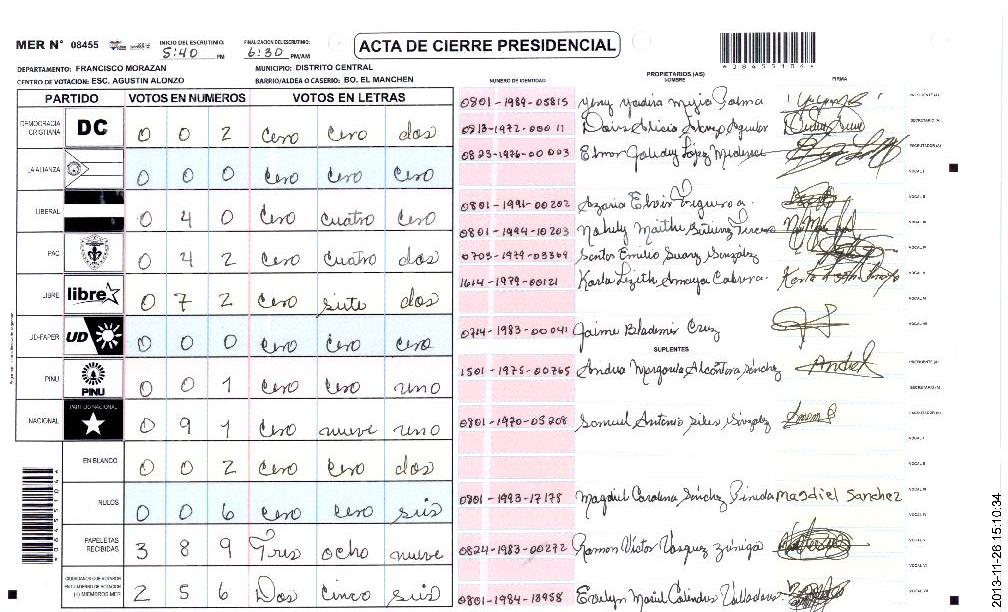 MER N° 08455 INICIO DEL ESCRUTINIO: 5:40 PM FINALIZACION DEL ESCRUTINIO: 6:30 PM/AM ACTA DE CIERRE PRESIDENCIAL
DEPARTAMENTO: FRANCISCO MORAZAN MUNICIPIO: DISTRITO CENTRAL
CENTRO DE VOTACION: ESC. AGUSTIN ALONZO BARRIO/ALDEA O CASERIO: BO. EL MANCHEN
NUMERO DE IDENTIDAD PROPIETARIOS (AS) NOMBRE FIRMA
PARTIDO VOTOS EN NUMEROS VOTOS EN LETRAS
DEMOCRACIA CRISTIANA DC 0 0 2 cero cero dos
LA ALIANZA 0 0 0 cero cero cero
LIBERAL 0 4 0 cero cuatro cero
PAC 0 4 2 cero cuatro dos
LIBRE libre 0 7 2 cero siete dos
UD-FAPER UD 0 0 0 cero cero cero
PINU PINU 0 0 1 cero cero uno
NACIONAL PARTIDO NACIONAL 0 9 1 cero nueve uno
EN BLANCO 0 0 2 cero cero dos
NULOS 0 0 6 cero cero seis
PAPELETAS RECIBIDAS 3 8 9 Tres ocho nueve
CIUDADANOS QUE VOTARON EN CUADERNO DE VOTACION (+) MIEMBROS MER 2 5 6 Dos cinco seis
0801-1989-05815 Yeny Yadira Mejia Palma
0813-1972-00011 Doris Alicia
0823-1976-00003 Elmor López
0801-1991-00202 Azaria Elvir Figueroa
0801-1994-10203 Nohely Maithe
0703-1979-03369 Santos Emilio Suarez González
1614-1979-00121 Karla Lizeth Amaya Cabrera
0714-1983-00041 Jaime Blademir Cruz
SUPLENTES
1501-1975-00765 Andrea Margarita Alcántara Sánchez
0801-1970-05208 Samuel Antonio
0801-1993-17178 Magdiel Carolina Sánchez Pineda Magdiel Sanchez
0824-1983-00272 Ramon Victor Vasquez Zúniga
0801-1984-18958 Evelyn Mariel Valladares
2013-11-26 15:10:34